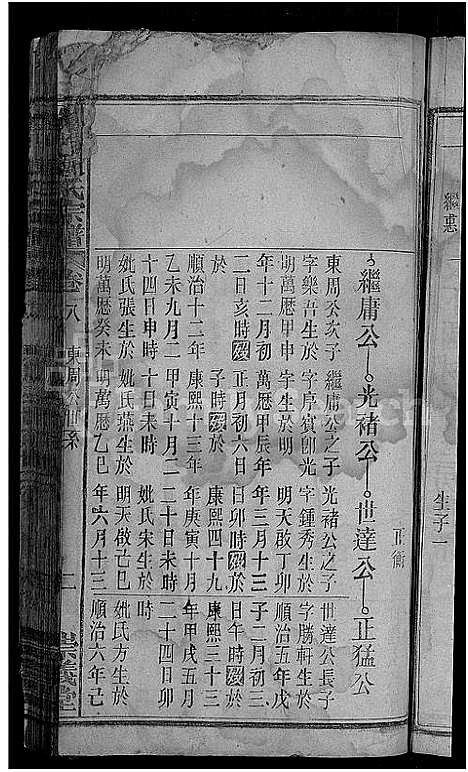 繼恚
生子二
繼庸公 光褚公 世達公 正猛公
正衡
東周公亥子 繼庸公之子 光褚公之子 世達公長子
字樂吾生於 字厚寅卽光 字鍾秀生於 字勝軒生於
明萬厯甲申 宇生於明 明天啟丁卯 順治五年戊
年十二月初 萬厯甲辰年 年三月十三 子二月初三
二日亥時歿 正月初六日 日卯時歿於 日午時歿於
於 子時歿於 康熙四十九 康熙三十三
順治十二年 康熙十三年 年庚寅十月 年甲戌五月
乙未九月二 甲寅十月二 二十日未時 二十四日卯
十四日申時 十日未時 姚氏宋生於 時
姚氏張生於 姚氏燕生於 明天啟己巳 姚氏方生於
明萬厯癸未 明萬厯乙巳 年六月十三 順治六年己
氏宗譜 卷八 東周公世系 二 崇義堂